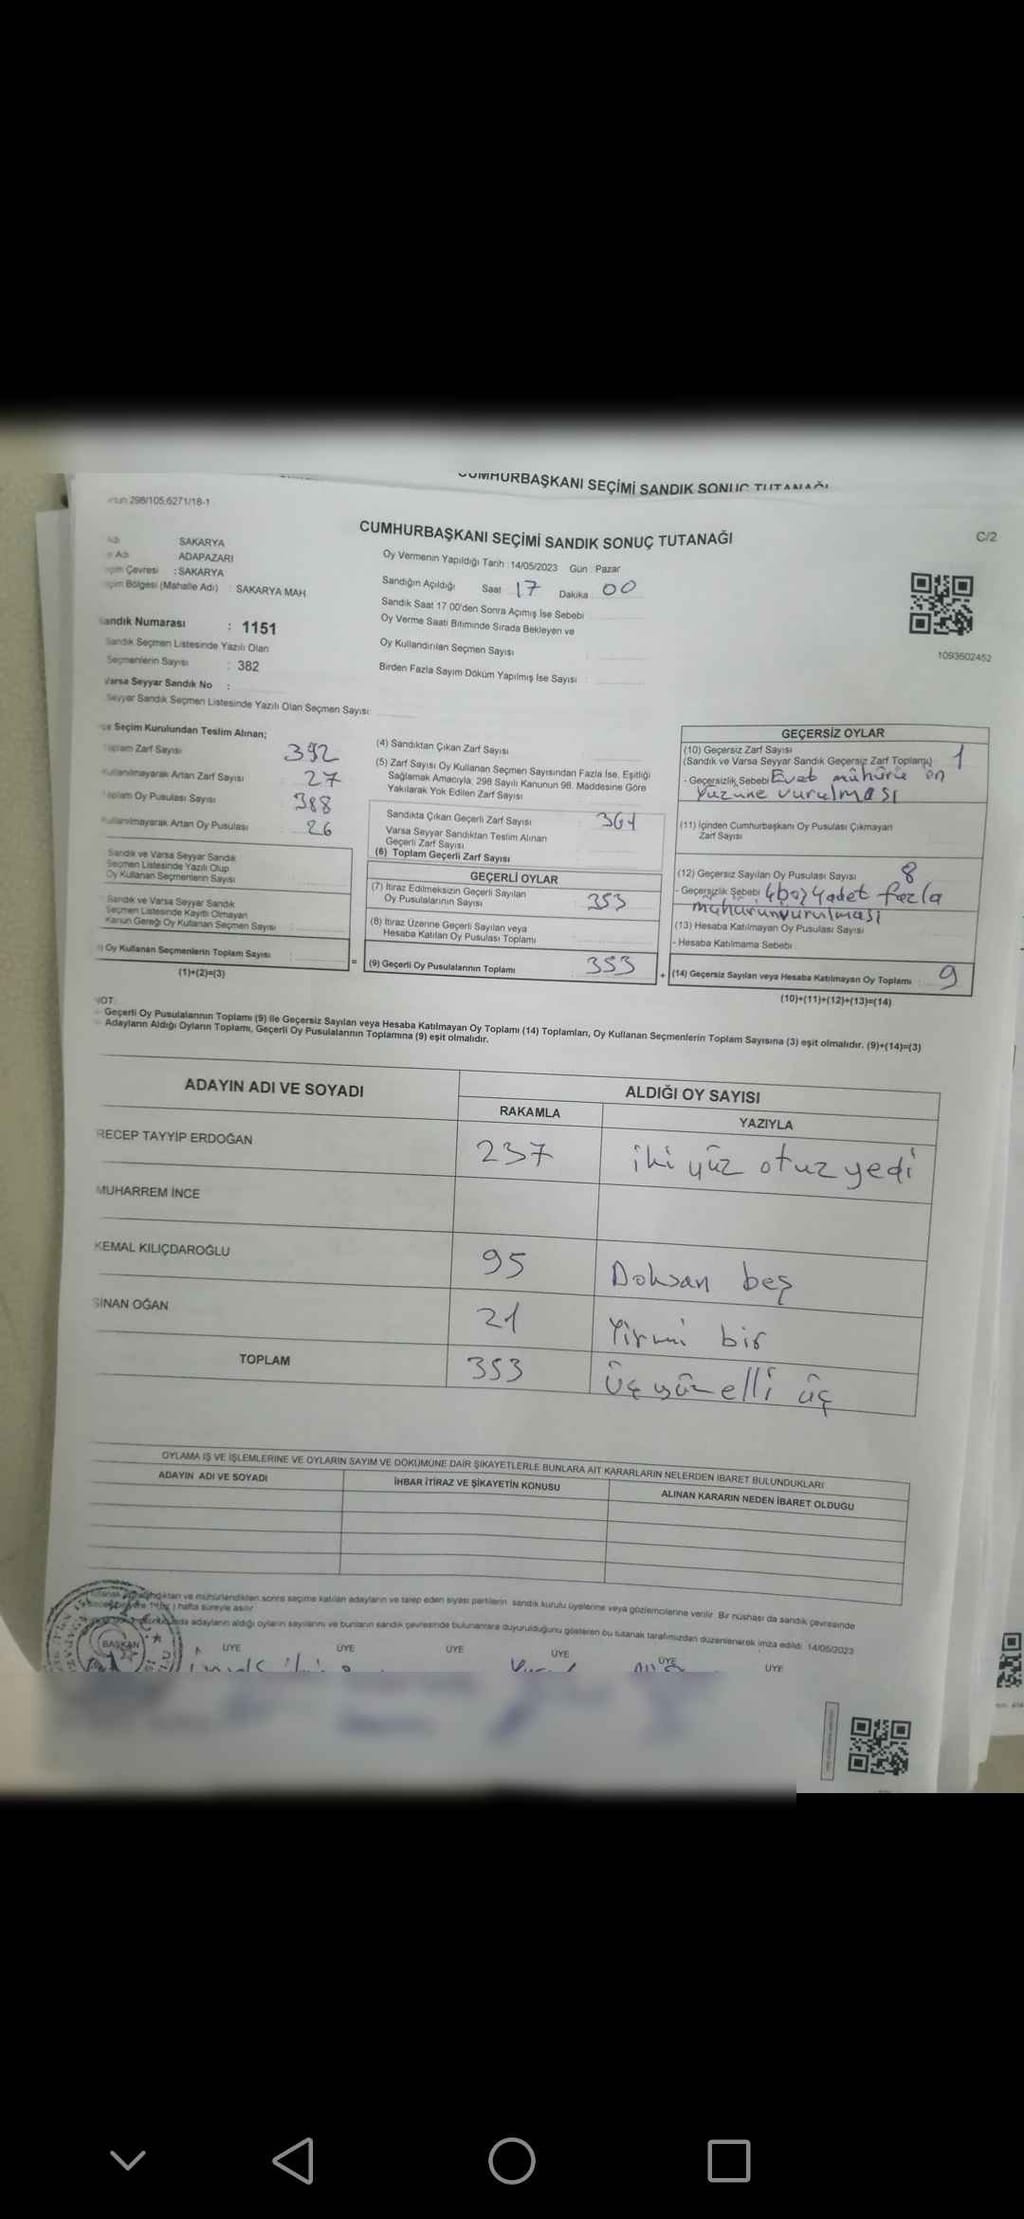 CUMHURBAŞKANI SEÇİMİ SANDIK SONUÇ TUTANAĞI
298/105.6271/18-1
CUMHURBAŞKANI SEÇİMİ SANDIK SONUÇ TUTANAĞI
C/2
SAKARYA
ADAPAZARI
Çevresi : SAKARYA
Bölgesi (Mahalle Adı) : SAKARYA MAH
Sandık Numarası : 1151
Sandık Seçmen Listesinde Yazılı Olan
Seçmenlerin Sayısı : 382
Varsa Seyyar Sandık No :
Seyyar Sandık Seçmen Listesinde Yazılı Olan Seçmen Sayısı:
Oy Vermenin Yapıldığı Tarih : 14/05/2023 Gün : Pazar
Sandığın Açıldığı Saat 17 Dakika 00
Sandık Saat 17 00'den Sonra Açımış İse Sebebi
Oy Verme Saati Bitiminde Sırada Bekleyen ve
Oy Kullandırılan Seçmen Sayısı
Birden Fazla Sayım Döküm Yapılmış İse Sayısı
1093602452
Seçim Kurulundan Teslim Alınan;
Toplam Zarf Sayısı 392
Kullanılmayarak Artan Zarf Sayısı 27
Toplam Oy Pusulası Sayısı 388
Kullanılmayarak Artan Oy Pusulası 26
Sandık ve Varsa Seyyar Sandık
Seçmen Listesinde Yazılı Olup
Oy Kullanan Seçmenlerin Sayısı
Sandık ve Varsa Seyyar Sandık
Seçmen Listesinde Kayıtlı Olmayan
Kanun Gereği Oy Kullanan Seçmen Sayısı
Oy Kullanan Seçmenlerin Toplam Sayısı
(1)+(2)=(3)
(4) Sandıktan Çıkan Zarf Sayısı
(5) Zarf Sayısı Oy Kullanan Seçmen Sayısından Fazla İse, Eşitliği
Sağlamak Amacıyla, 298 Sayılı Kanunun 98. Maddesine Göre
Yakılarak Yok Edilen Zarf Sayısı
Sandıkta Çıkan Geçerli Zarf Sayısı 364
Varsa Seyyar Sandıktan Teslim Alınan
Geçerli Zarf Sayısı
(6) Toplam Geçerli Zarf Sayısı
GEÇERLİ OYLAR
(7) İtiraz Edilmeksizin Geçerli Sayılan
Oy Pusulalarının Sayısı 353
(8) İtiraz Üzerine Geçerli Sayılan veya
Hesaba Katılan Oy Pusulası Toplamı
= (9) Geçerli Oy Pusulalarının Toplamı 353
GEÇERSİZ OYLAR
(10) Geçersiz Zarf Sayısı
(Sandık ve Varsa Seyyar Sandık Geçersiz Zarf Toplamı) 1
- Geçersizlik Sebebi Evet mühürü ön
yüzüne vurulması
(11) İçinden Cumhurbaşkanı Oy Pusulası Çıkmayan
Zarf Sayısı
(12) Geçersiz Sayılan Oy Pusulası Sayısı 8
- Geçersizlik Sebebi 4 boş 4 adet fazla
mühürün vurulması
(13) Hesaba Katılmayan Oy Pusulası Sayısı
- Hesaba Katılmama Sebebi
+ (14) Geçersiz Sayılan veya Hesaba Katılmayan Oy Toplamı 9
(10)+(11)+(12)+(13)=(14)
NOT:
Geçerli Oy Pusulalarının Toplamı (9) ile Geçersiz Sayılan veya Hesaba Katılmayan Oy Toplamı (14) Toplamları, Oy Kullanan Seçmenlerin Toplam Sayısına (3) eşit olmalıdır. (9)+(14)=(3)
Adayların Aldığı Oyların Toplamı, Geçerli Oy Pusulalarının Toplamına (9) eşit olmalıdır.
ADAYIN ADI VE SOYADI
ALDIĞI OY SAYISI
RAKAMLA YAZIYLA
RECEP TAYYİP ERDOĞAN 237 iki yüz otuz yedi
MUHARREM İNCE
KEMAL KILIÇDAROĞLU 95 Doksan beş
SİNAN OĞAN 21 Yirmi bir
TOPLAM 353 üç yüz elli üç
OYLAMA İŞ VE İŞLEMLERİNE VE OYLARIN SAYIM VE DÖKÜMÜNE DAİR ŞİKAYETLERLE BUNLARA AİT KARARLARIN NELERDEN İBARET BULUNDUKLARI
ADAYIN ADI VE SOYADI İHBAR İTİRAZ VE ŞİKAYETİN KONUSU ALINAN KARARIN NEDEN İBARET OLDUĞU
ve mühürlendikten sonra seçime katılan adayların ve talep eden siyasi partilerin sandık kurulu üyelerine veya gözlemcilerine verilir. Bir nüshası da sandık çevresinde
hafta süreyle asılır
adayların aldığı oyların sayılarını ve bunların sandık çevresinde bulunanlara duyurulduğunu gösteren bu tutanak tarafımızdan düzenlenerek imza edildi. 14/05/2023
BAŞKAN ÜYE ÜYE ÜYE ÜYE ÜYE ÜYE